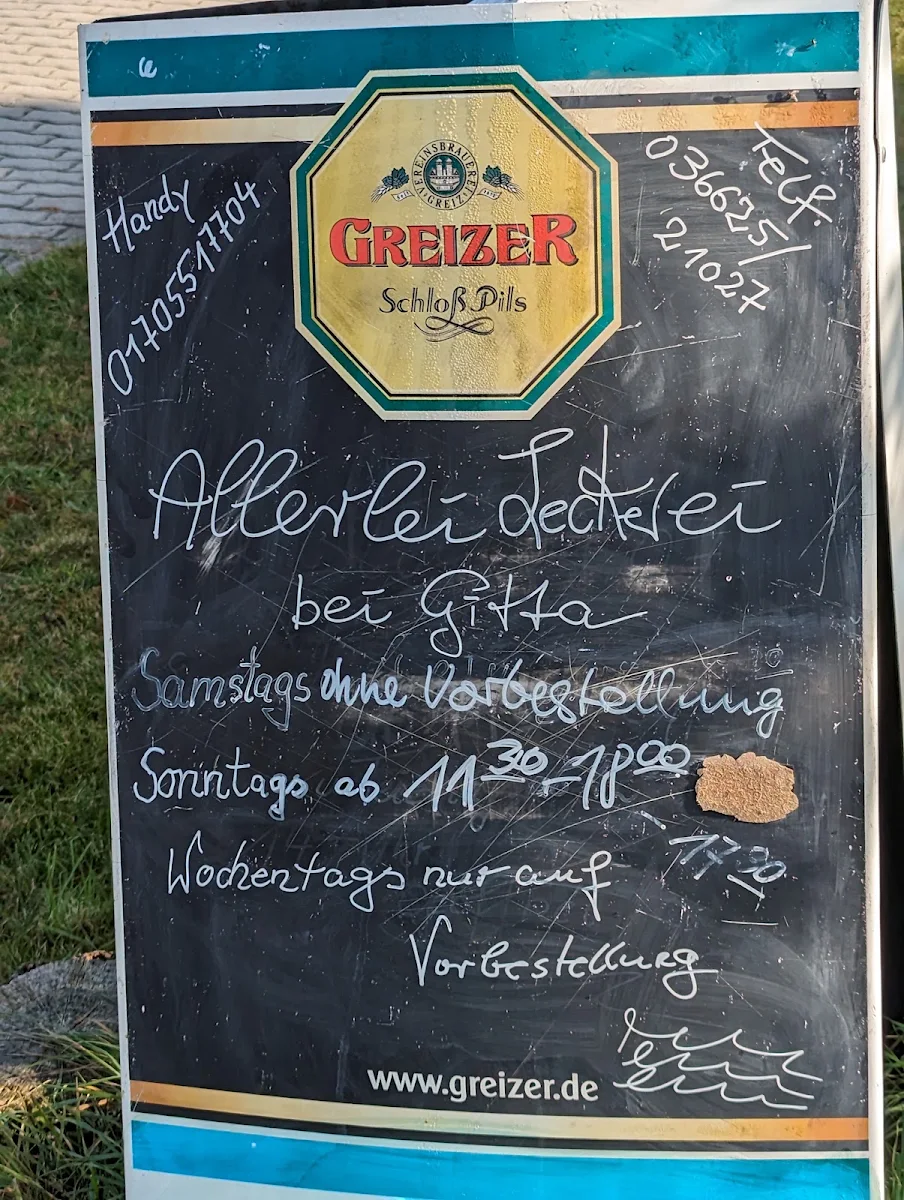 Handy
01705517704
Telf.
036625/
21027
VEREINSBRAUEREI
GREIZ
GREIZER
Schloß Pils
Allerlei Leckerei
bei Gitta
Samstags ohne Vorbestellung
Sonntags ab 11 30 - 18 00
17 30
Wochentags nur auf
Vorbestellung
www.greizer.de